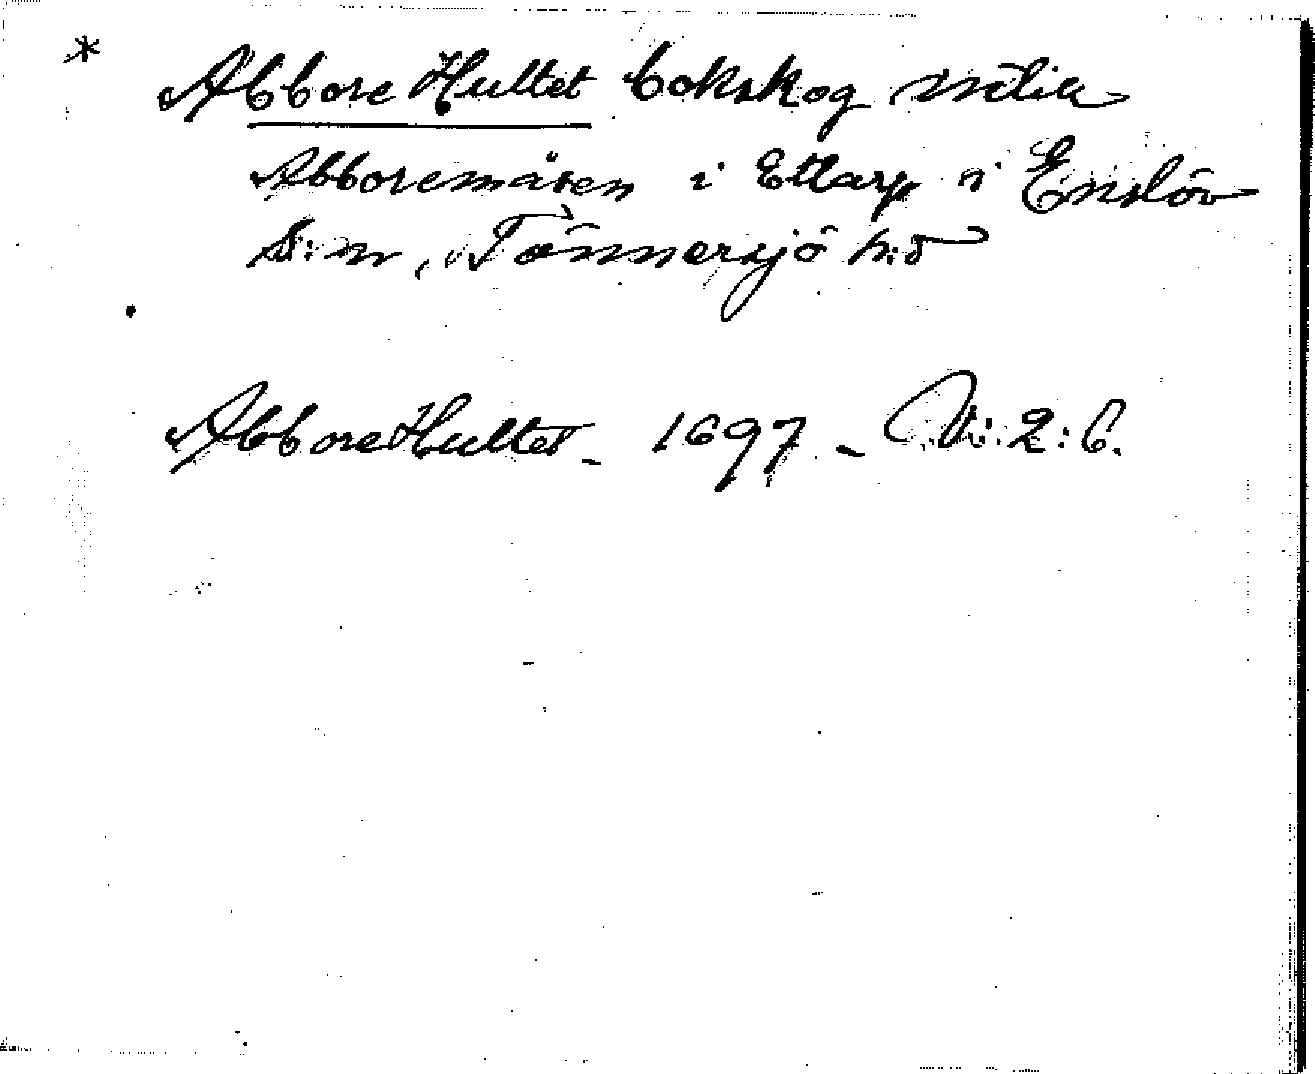 * Abbore Hultet bokskog vidlia
Abboremåsen i Ettarp i Enslöv
S:n, Tönnersjö h:d
AbboreHultet - 1697 - N: 2: 6.